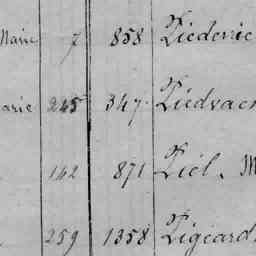 Marie 7 858 Ziederic
arie 245 347 Ziedvac
142 871 Ziel, M
259 1358 Zigeard